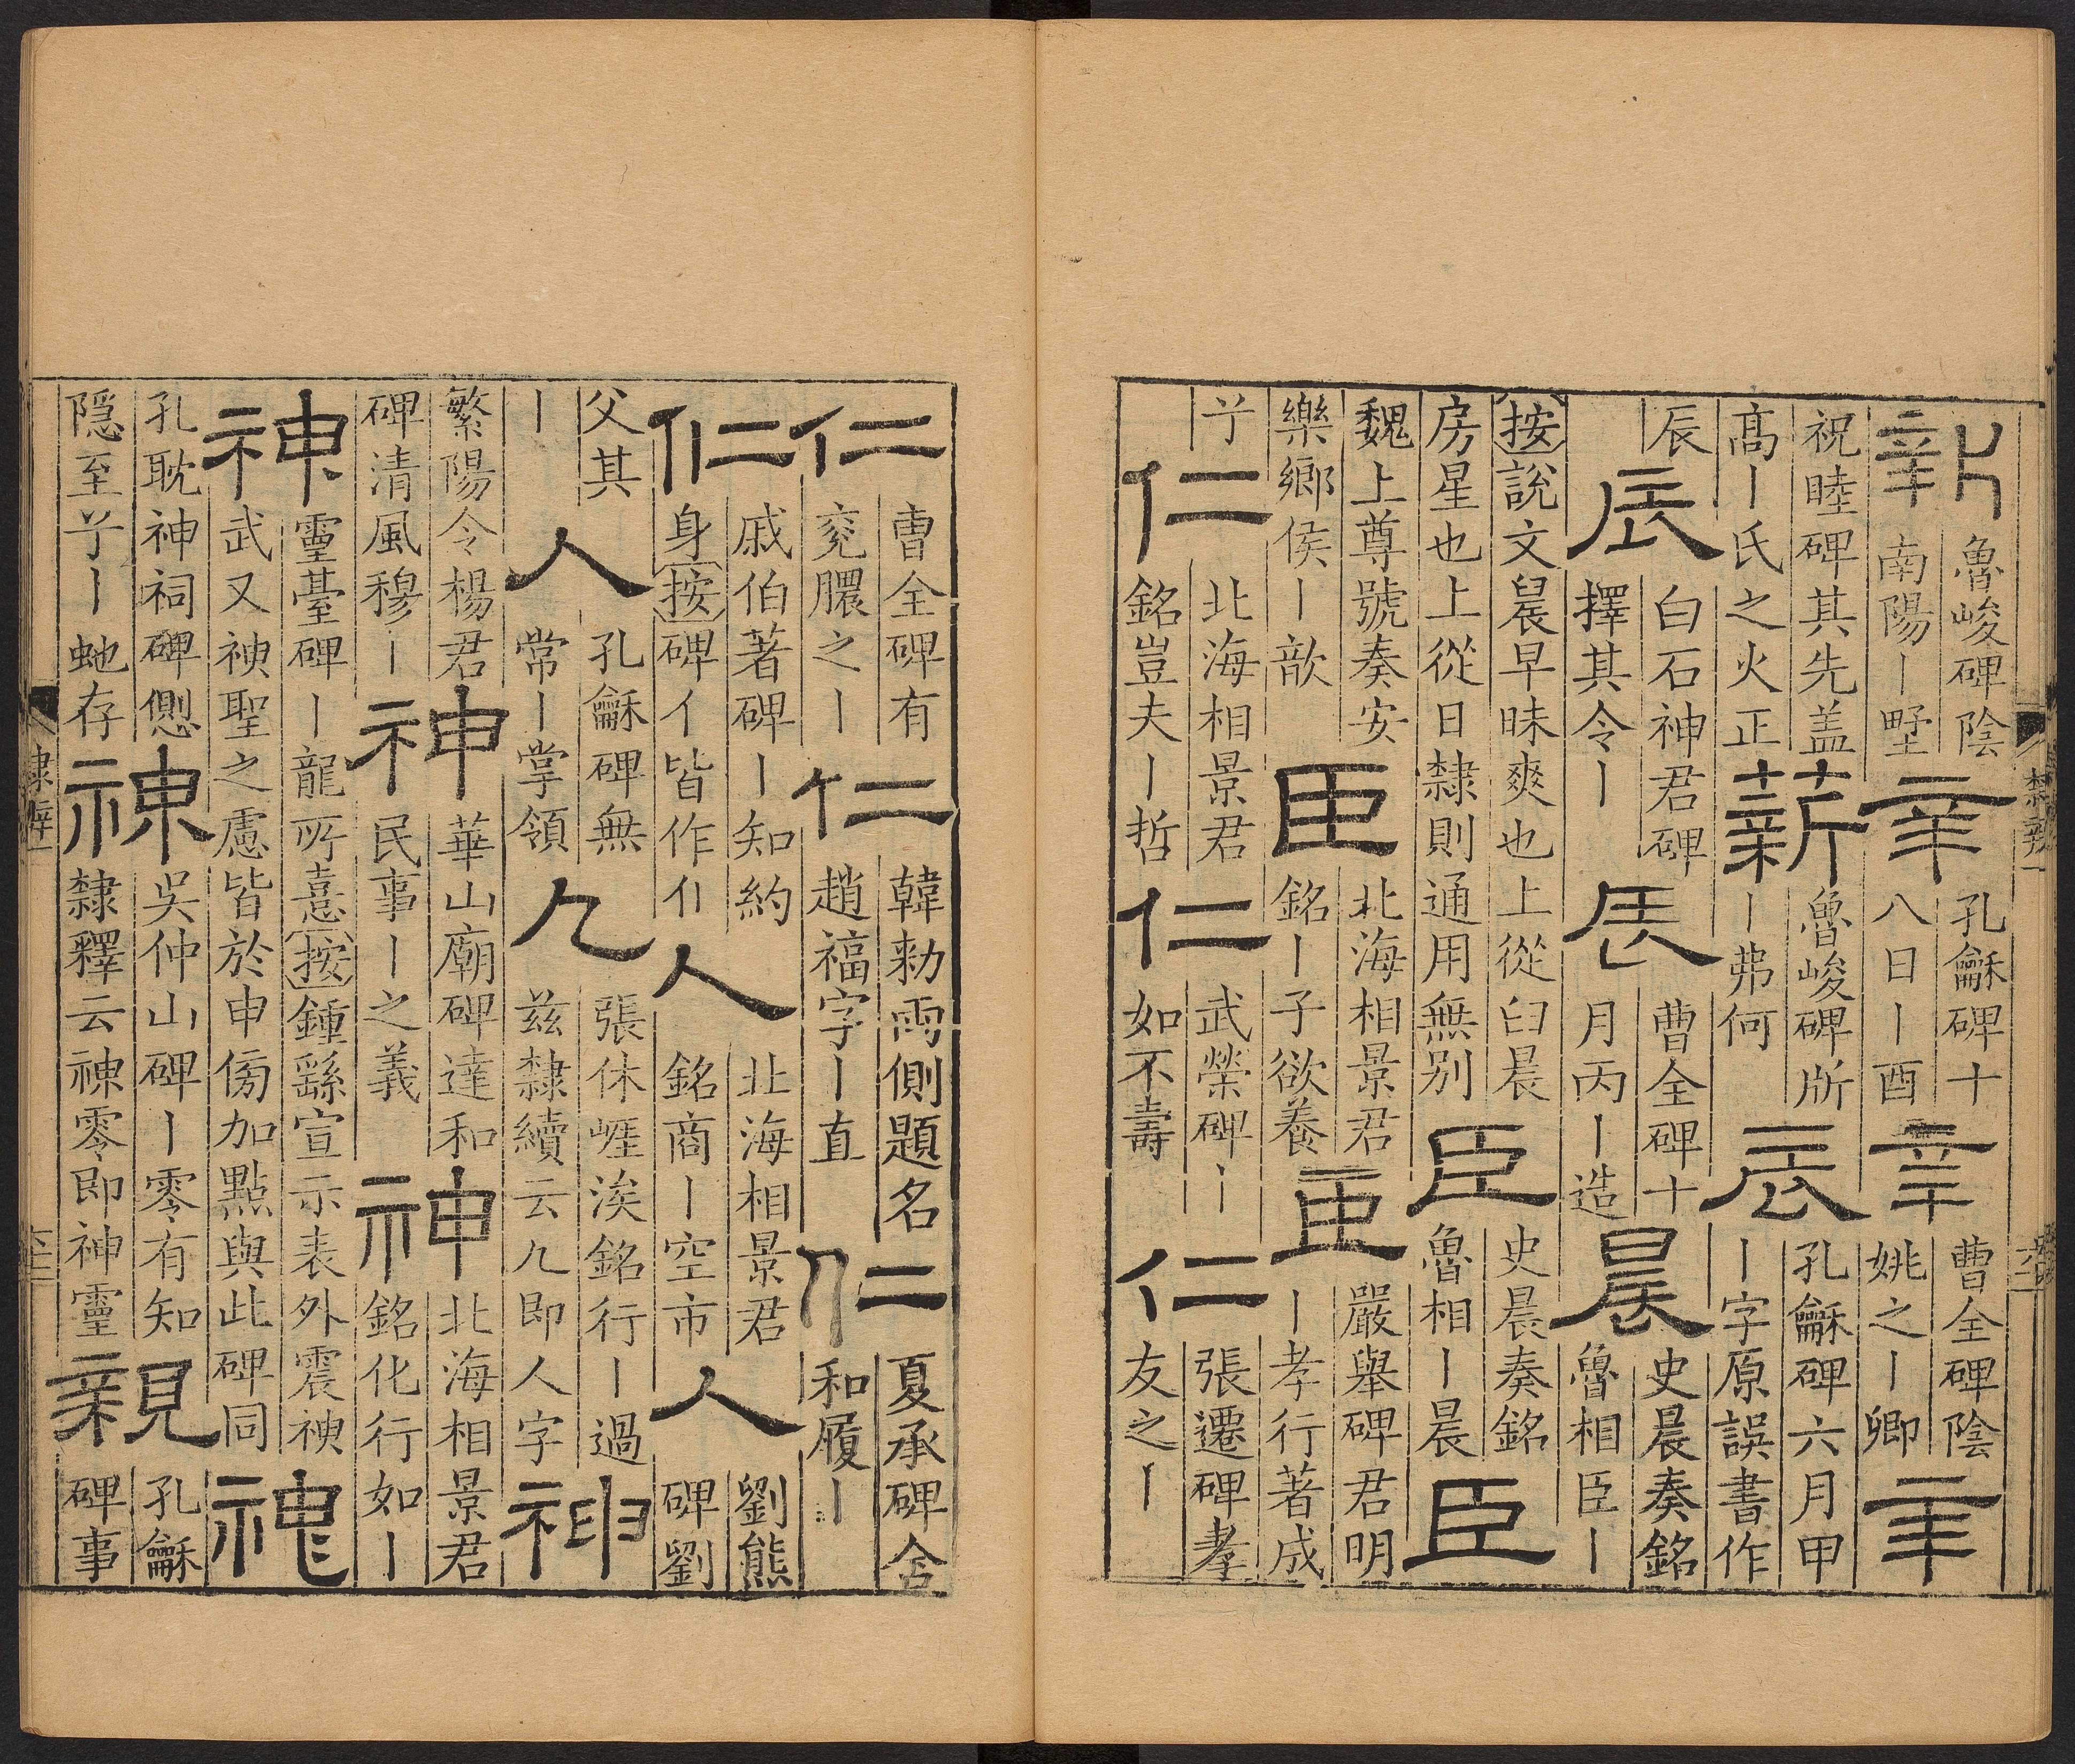 新魯峻碑陰南陽丨墅辛孔龢碑十八日丨酉辛曹全碑陰姚之丨卿辛
祝睦碑其先盖高丨氏之火正薪魯峻碑所丨弗何辰孔龢碑六月甲丨字原誤書作
辰辰白石神君碑擇其令丨辰曹全碑十月丙丨造晨史晨奏銘魯相臣丨
按說文晨早昧爽也上從臼晨房星也上從日隸則通用無别臣史晨奏銘魯相丨晨臣
魏上尊號奏安樂鄉侯丨歆臣北海相景君銘丨子欲養臣嚴舉碑君明丨孝行著成
兮仁北海相景君銘豈夫丨哲仁武榮碑丨如不壽仁張遷碑孝友之丨
隸辨一
仁曹全碑有兖膿之丨仁韓勑兩側題名趙福字丨直仁夏承碑含和履丨
仁戚伯著碑丨知約身按碑亻皆作仆人北海相景君銘商丨空市人劉熊碑劉
父其丨人孔龢碑無常丨掌領人張休崕涘銘行丨過茲隸續云𠆢即人字神
繁陽令楊君碑清風穆丨神華山廟碑達和民事丨之義神北海相景君銘化行如丨
神靈臺碑丨龍所憙按鍾繇宣示表外震神武又神聖之慮皆於申傍加點與此碑同神
孔耽神祠碑愳隱至兮丨虵存神吳仲山碑丨零有知隸釋云神零即神靈親孔龢碑事
隸辨一